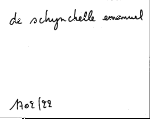 de schynckelle emmanuel
1702/22